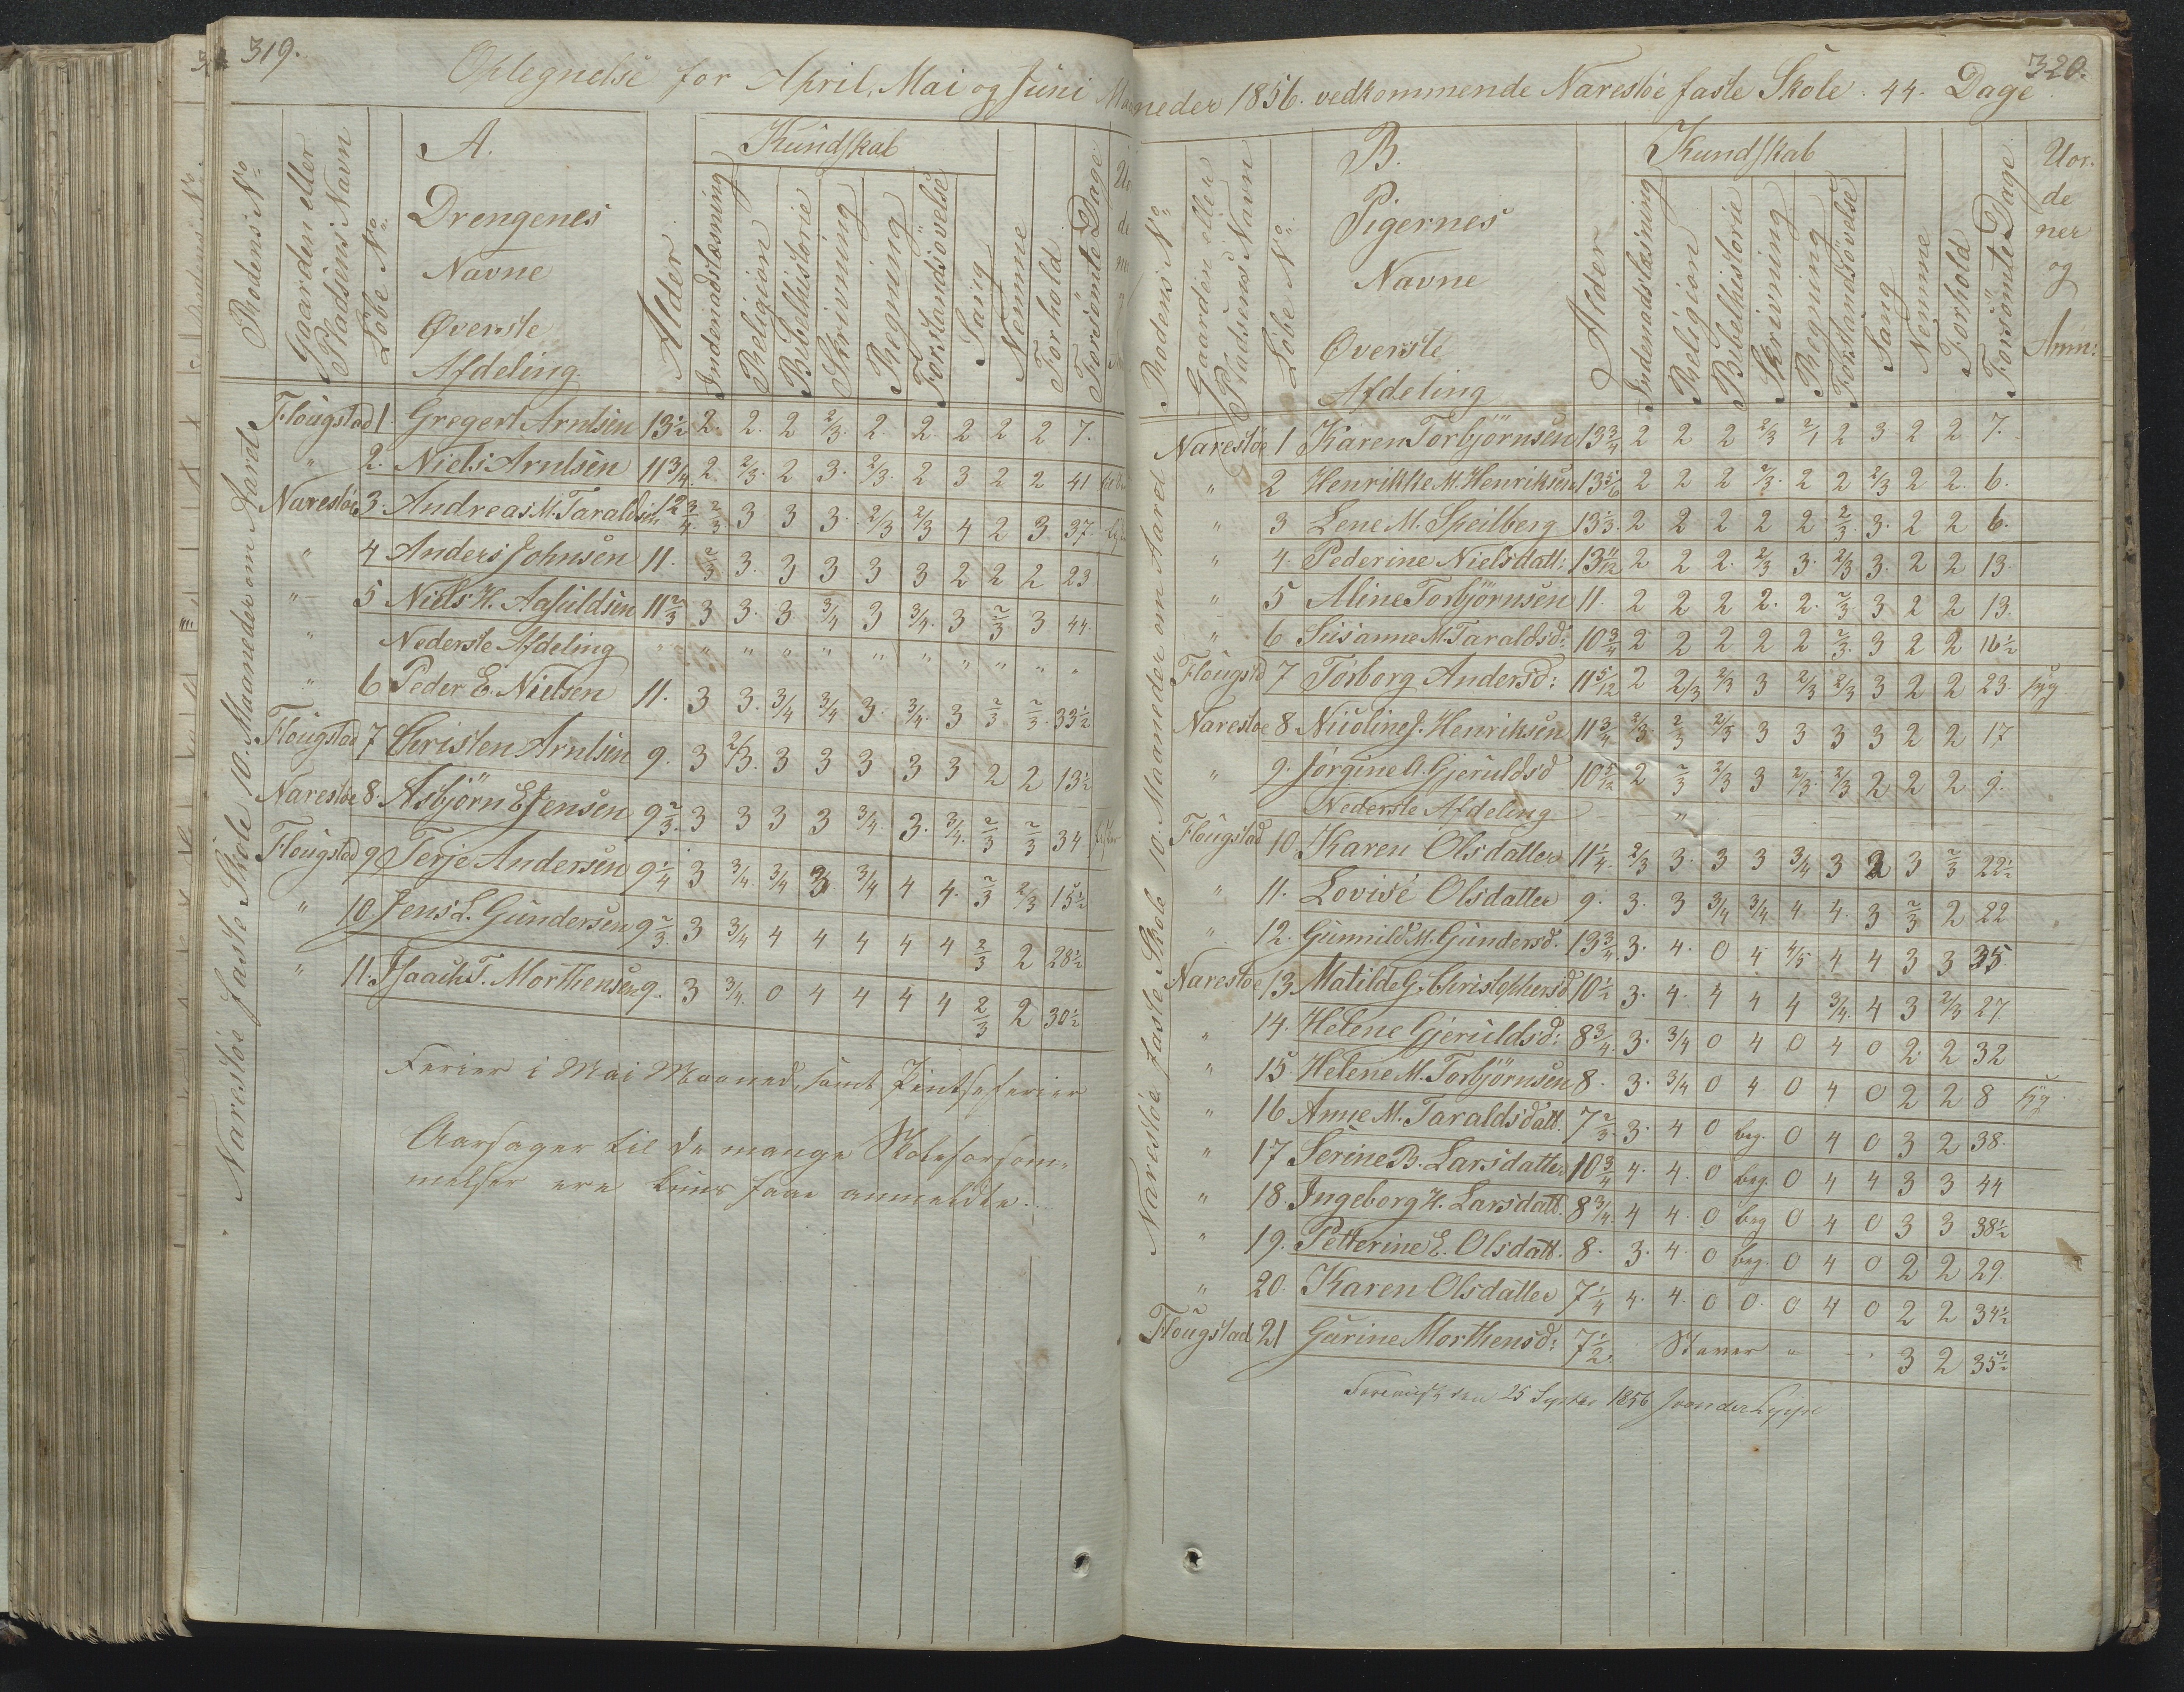 319.
Optegnelse for April, Mai og Juni Maa
Rodens No
Gaarden eller Pladsens Navn
Løbe No
A.
Drengenes
Navne
Øverste
Afdeling.
Alder
Kundskab
Indenadslæsning
Religion
Bibelhistorie
Skrivning
Regning
Forstandsøvelse
Sang
Nemme
Forhold
Forsömte Dage
Narestøe faste Skole 10. Maaneder om Aaret
Flougstad 1 Gregert Arntsen 13½ 2. 2. 2 2/3. 2 2 2 2 2 7.
" 2. Niels Arntsen 11¾ 2 2/3. 2 3. 2/3. 2 3 2 2 41
Narestøe 3. Andreas M. Taraldsen 12¾ 2/3 3 3 3. 2/3 2/3 4 2 3. 37.
" 4 Anders Johnsen 11. 2/3 3. 3 3 3 3 2 2 2 23
" 5 Niels H. Agsuldsen 11⅔ 3 3. 3. 3/4 3 3/4. 3 2/3 3 44.
Nederste Afdeling " " " " " " " " " "
" 6 Peder E. Nielsen 11. 3 3. 3/4 3/4 3. 3/4. 3 2/3 2/3. 33½
Flougstad 7 Christen Arntsen 9. 3 2/3. 3 3 3 3 3 2 2 13½
Narestøe 8. Asbjörn E Jensen 9⅔. 3 3 3 3 3/4. 3. 3/4. 2/3 2/3 34
Flougstad 9 Terje Andersen 9¼ 3 3/4. 3/4 3 3/4 4 4. 2/3 2/3 15½
" 10 Jens L. Gundersen 9⅔. 3 3/4 4 4 4 4 4 2/3 2 28½
" 11. Isaach T. Morthensen 9. 3 3/4. 0 4 4 4 4 2/3 2 30½
Ferier i Mai Maaned, samt Pintseferier
Aarsager til de mange Skoleforsöm-
melser ere kuns faae anmeldte.
320.
neder 1856. vedkommende Narestøe faste Skole. 44. Dage
Rodens No
Gaarden eller Pladsens Navn
Løbe No
B.
Pigernes
Navne
Øverste
Afdeling
Alder
Kundskab
Indenadslæsning
Religion
Bibelhistorie
Skrivning
Regning
Forstandsövelse
Sang
Nemme
Forhold
Forsömte Dage
Uor.
de
ner
og
Anm:
Narestøe faste Skole 10. Maaneder om Aaret
Narestøe 1 Karen Torbjörnsen 13¾ 2 2 2 2/3 2/1 2 3 2 2 7.
" 2 Henrikke M. Henriksen 13⅚ 2 2 2 2/3. 2 2 2/3 2 2. 6.
" 3 Lene M. Speilberg 13⅓. 2 2 2 2 2 2/3. 3. 2 2 6.
" 4. Pederine Nielsdatt: 13 11/12 2 2 2. 2/3 3. 2/3 3. 2 2 13.
" 5 Aline Torbjörnsen 11. 2 2 2 2. 2. 2/3. 3 2 2 13.
" 6 Susanne M. Taraldsd: 10¾ 2 2 2 2 2 2/3. 3 2 2 16½
Flougstd 7 Torborg Andersd: 11 5/12 2 2/3 2/3 3 2/3 2/3 3 2 2 23. syg
Narestøe 8. Nicoline J. Henriksen 11¾ 2/3. 2/3 2/3 3 3 3 3 2 2 17
" 9. Jörgine A. Gjeruldsd 10 5/12 2 2/3 2/3 3 2/3. 2/3 2 2 2 9.
Nederste Afdeling "
Flougstad 10 Karen Olsdatter 11¼. 2/3 3. 3 3 3/4 3 2 3 2/3 22½
" 11. Lovise Olsdatter 9. 3. 3 3/4 3/4 4 4. 3 2/3 2 22
" 12. Gunnild M. Gundersd. 13¾ 3. 4. 0 4 4/5 4 4 3 3 35
Narestøe 13 Matilde G. Christophersd 10½ 3. 4. 4 4 4 3/4. 4 3 2/3 27
" 14. Helene Gjeruldsd: 8¾. 3. 3/4 0 4 0 4 0 2 2 32
" 15. Helene M. Torbjörnsen 8. 3. 3/4 0 4 0 4 0 2 2 8 syg
" 16 Anne M. Taraldsdatt. 7⅔. 3. 4 0 beg. 0 4 0 3 2 38.
" 17 Serine B. Larsdatter 10¾ 4. 4. 0 beg. 0 4 4 3 3 44
" 18. Ingeborg H. Larsdatt. 8¾. 4 4. 0 beg 0 4 0 3 3 38½
" 19. Petterine E. Olsdatt. 8. 3. 4. 0 beg. 0 4 0 2 2 29.
" 20. Karen Olsdatter 7¼ 4. 4. 0 0. 0 4 0 2 2 34½
Flougstad 21 Gurine Morthensd: 7½. Staver " 3 2 35½
den 25 Septbr 1856